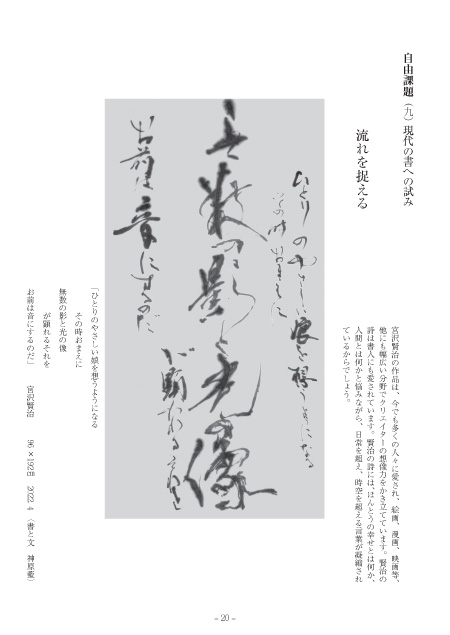 自由課題（九）現代の書への試み
流れを捉える
宮沢賢治の作品は、今でも多くの人々に愛され、絵画、漫画、映画等、
他にも幅広い分野でクリエイターの想像力をかき立てています。賢治の
詩は書人にも愛されています。賢治の詩には、ほんとうの幸せとは何か、
人間とは何かと悩みながら、日常を超え、時空を超える言葉が凝縮され
ているからでしょう。
ひとりのやさしい娘を想うようになる
その時おまえに
無数の影と光の像
が顕れるそれを
お前は音にするのだ
「ひとりのやさしい娘を想うようになる
その時おまえに
無数の影と光の像
が顕れるそれを
お前は音にするのだ」　宮沢賢治　96×192㎝　2022 4　（書と文　神原藍）
– 20 –